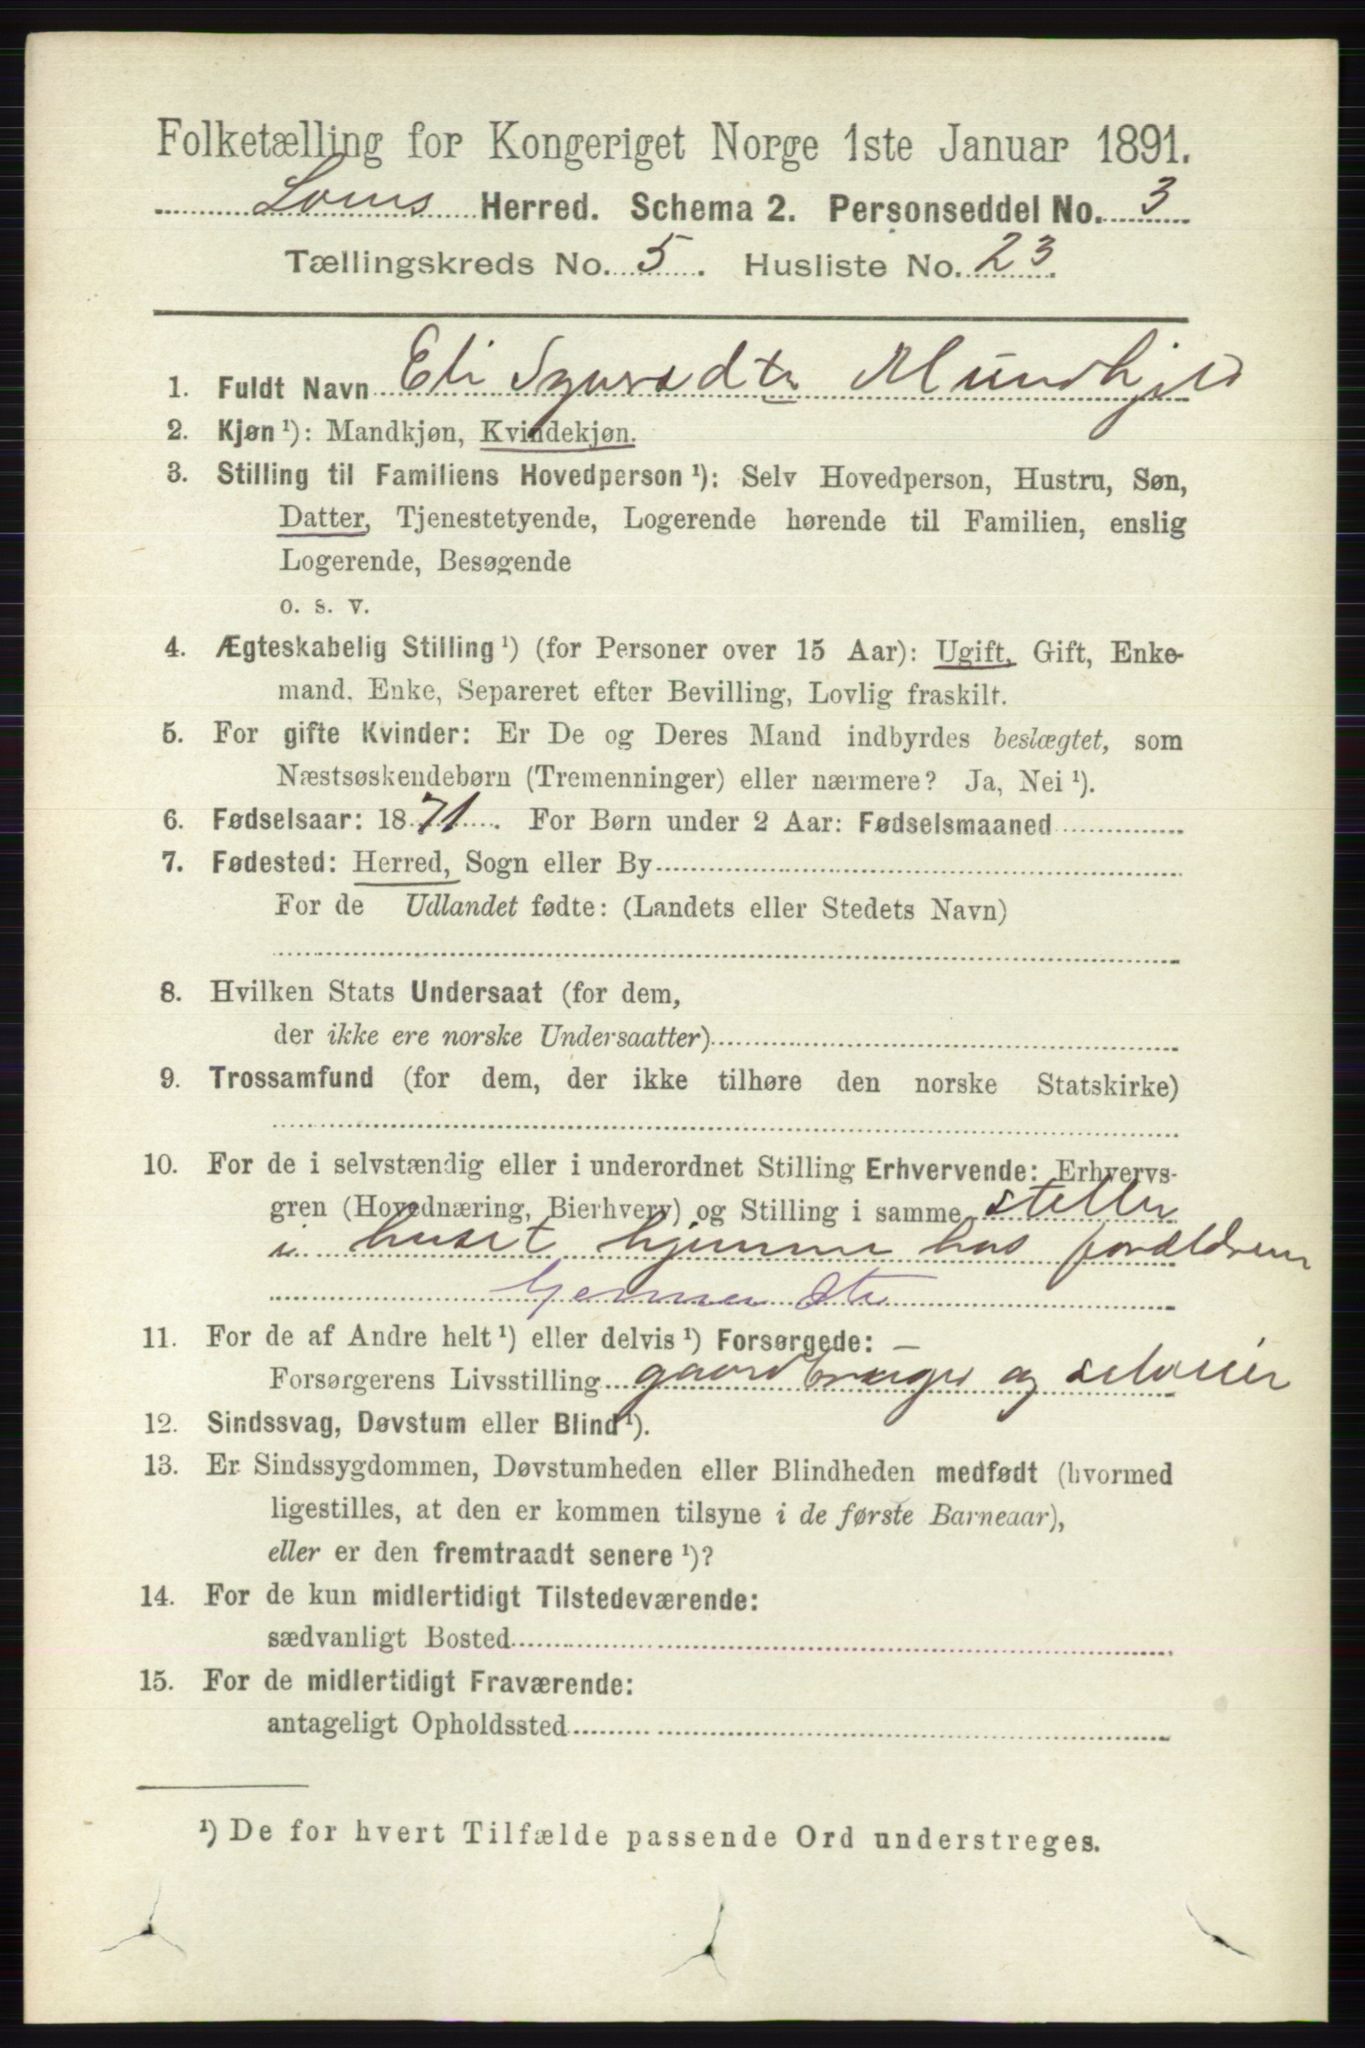 Folketælling for Kongeriget Norge 1ste Januar 1891.
Loms Herred. Schema 2. Personseddel No. 3
Tællingskreds No. 5. Husliste No. 23.
1. Fuldt Navn Eli Syversdtr Mundhjeld
2. Kjøn ¹): Mandkjøn, Kvindekjøn.
3. Stilling til Familiens Hovedperson ¹): Selv Hovedperson, Hustru, Søn,
Datter, Tjenestetyende, Logerende hørende til Familien, enslig
Logerende, Besøgende
o. s. v.
4. Ægteskabelig Stilling ¹) (for Personer over 15 Aar): Ugift, Gift, Enke-
mand, Enke, Separeret efter Bevilling, Lovlig fraskilt.
5. For gifte Kvinder: Er De og Deres Mand indbyrdes beslægtet, som
Næstsøskendebørn (Tremenninger) eller nærmere? Ja, Nei ¹).
6. Fødselsaar: 1871. For Børn under 2 Aar: Fødselsmaaned
7. Fødested: Herred, Sogn eller By
For de Udlandet fødte: (Landets eller Stedets Navn)
8. Hvilken Stats Undersaat (for dem,
der ikke ere norske Undersaatter)
9. Trossamfund (for dem, der ikke tilhøre den norske Statskirke)
10. For de i selvstændig eller i underordnet Stilling Erhvervende: Erhvervs-
gren (Hovednæring, Bierhverv) og Stilling i samme steller
i huset hjemme hos forældrene
11. For de af Andre helt ¹) eller delvis ¹) Forsørgede:
Forsørgerens Livsstilling gaardbruger og selveier
12. Sindssvag, Døvstum eller Blind ¹).
13. Er Sindssygdommen, Døvstumheden eller Blindheden medfødt (hvormed
ligestilles, at den er kommen tilsyne i de første Barneaar),
eller er den fremtraadt senere ¹)?
14. For de kun midlertidigt Tilstedeværende:
sædvanligt Bosted
15. For de midlertidigt Fraværende:
antageligt Opholdssted
¹) De for hvert Tilfælde passende Ord understreges.